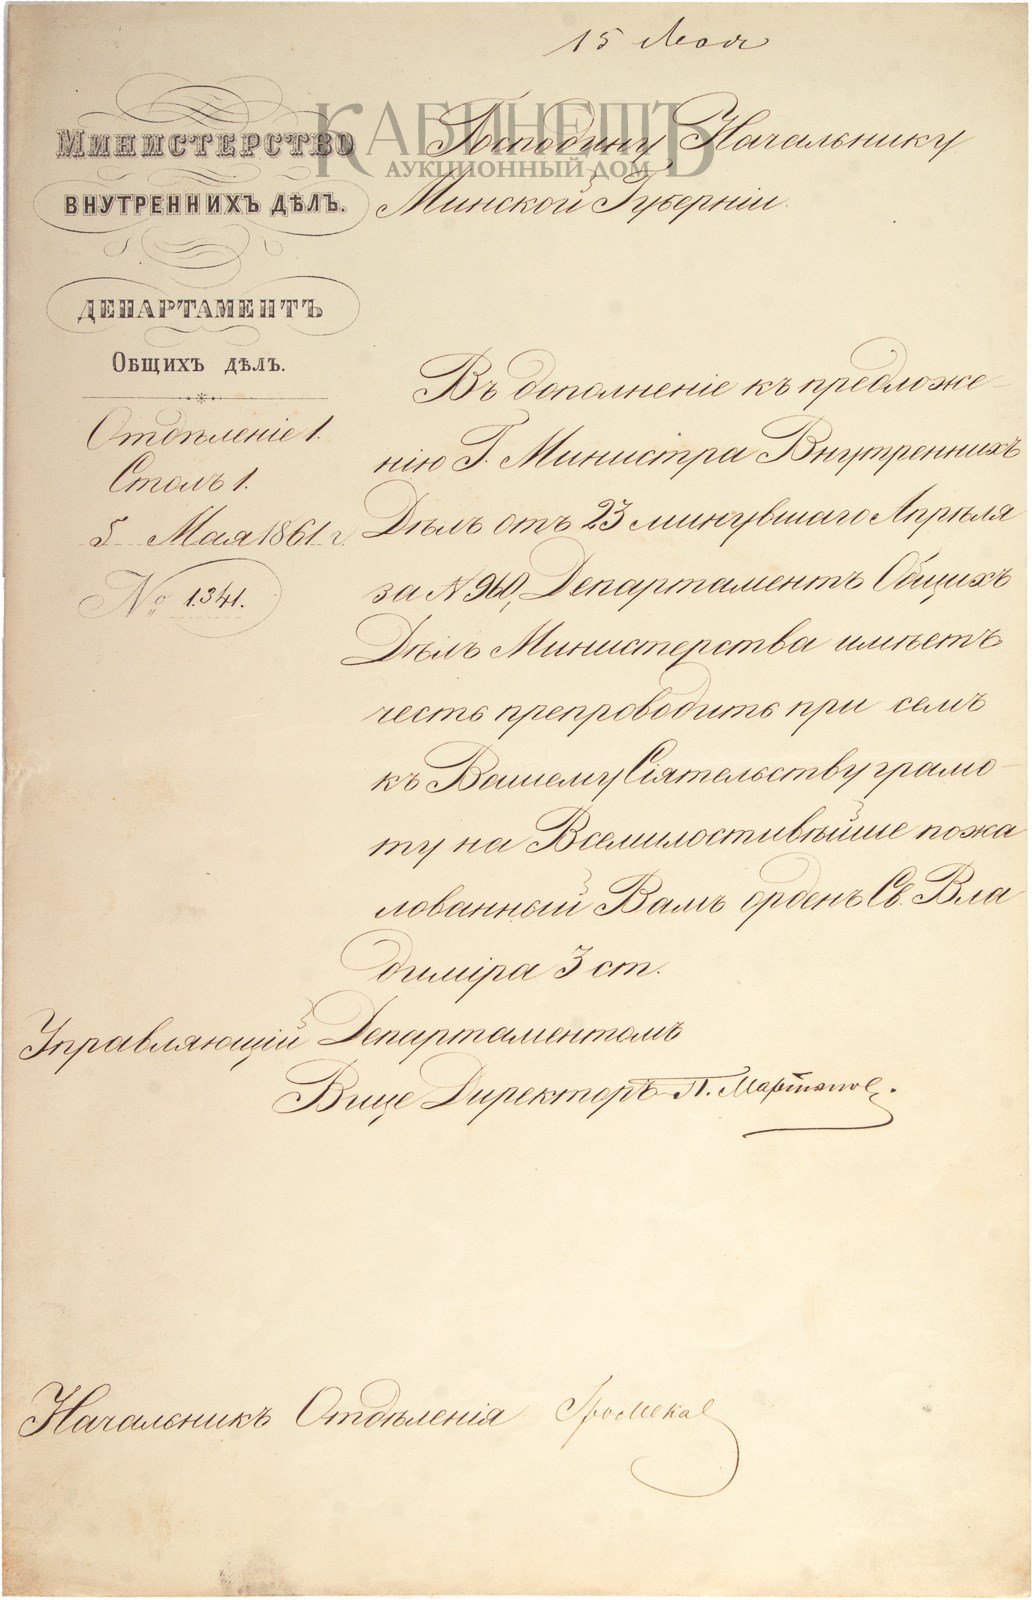 15 Мая
КАБИНЕТЪ
АУКЦИОННЫЙ ДОМ
МИНИСТЕРСТВО
ВНУТРЕННИХЪ ДѢЛЪ.
ДЕПАРТАМЕНТЪ
ОБЩИХЪ ДѢЛЪ.
Отдѣленіе 1.
Столъ 1.
5 Мая 1861 г.
№ 1341.
Господину Начальнику
Минской Губерніи.
Въ дополненіе къ предложе-
нію Г. Министра Внутреннихъ
Дѣлъ отъ 23 минувшаго Апрѣля
за № 960, Департаментъ Общихъ
Дѣлъ Министерства имѣетъ
честь препроводить при семъ
къ Вашему Сіятельству грамо-
ту на Всемилостивѣйше пожа
лованный Вамъ орденъ Св. Вла
диміра 3 ст.
Управляющій Департаментомъ
Вице Директоръ П. Мартыновъ.
Начальникъ Отдѣленія Громека